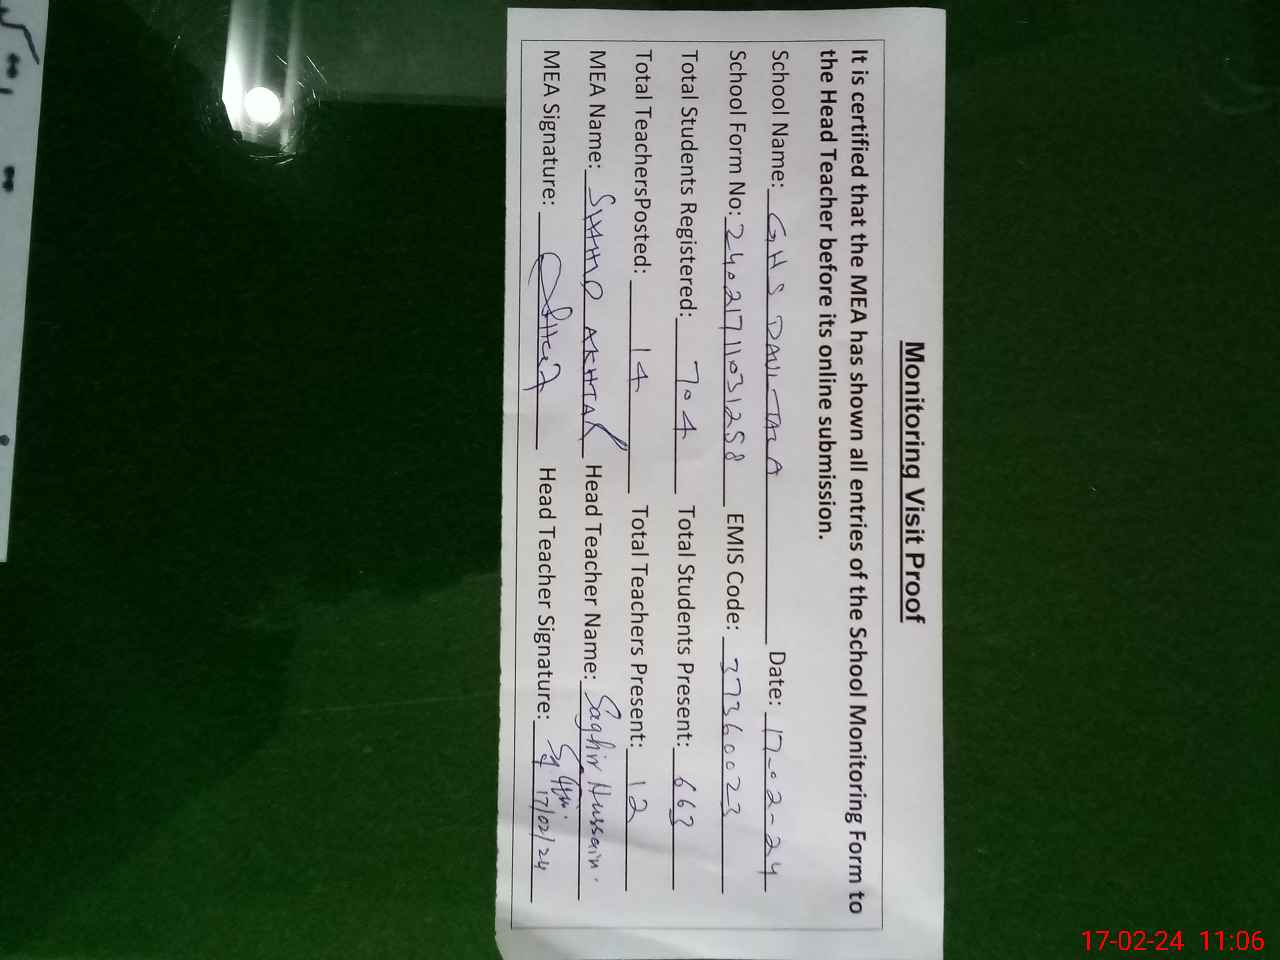 Monitoring Visit Proof
It is certified that the MEA has shown all entries of the School Monitoring Form to
the Head Teacher before its online submission.
School Name: GHS DAULTALA Date: 17-02-24
School Form No: 24021711031258 EMIS Code: 37360023
Total Students Registered: 704 Total Students Present: 663
Total TeachersPosted: 14 Total Teachers Present: 12
MEA Name: SHAHID AKHTAR Head Teacher Name: Saghir Hussain.
MEA Signature: Head Teacher Signature: 17/02/24
17-02-24 11:06